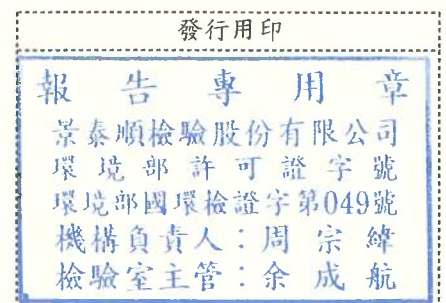 發行用印
報告專用章
景泰順檢驗股份有限公司
環境部許可證字號
環境部國環檢證字第049號
機構負責人：周宗緯
檢驗室主管：余成航